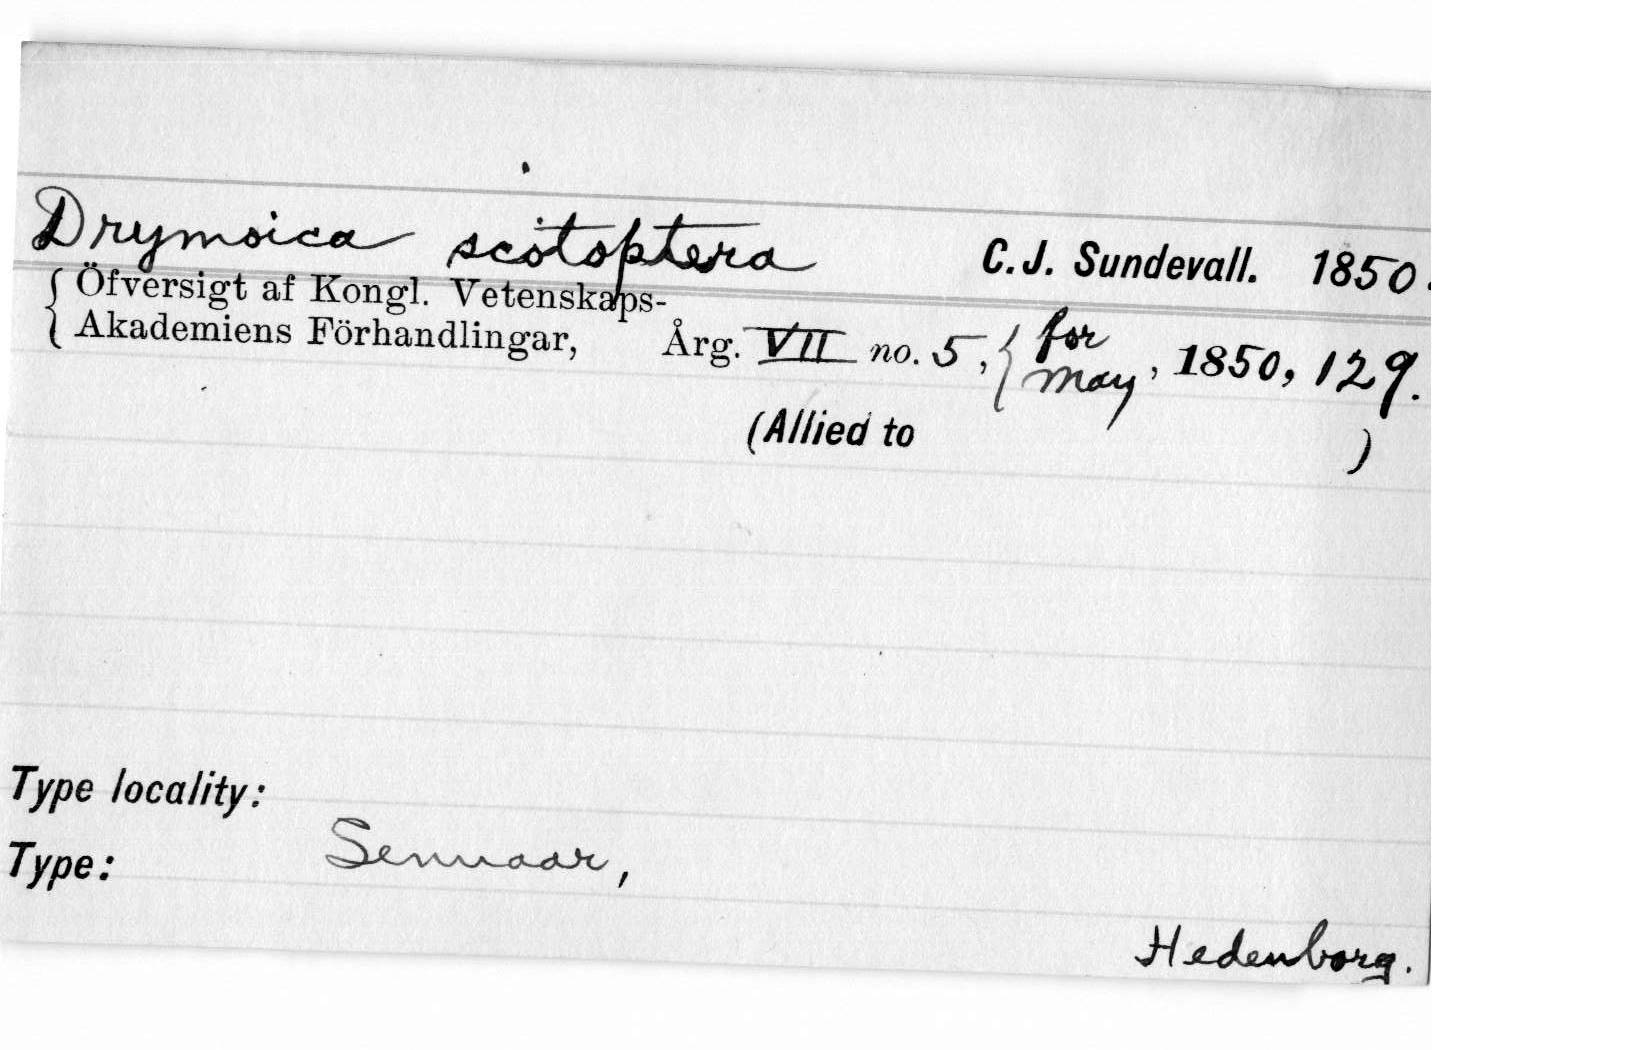 Drymoica scotoptera C.J. Sundevall. 1850.
{ Öfversigt af Kongl. Vetenskaps-
Akademiens Förhandlingar, Årg. VII no. 5, { for May, 1850, 129.
(Allied to )
Type locality:
Type: Sennaar,
Hedenborg.